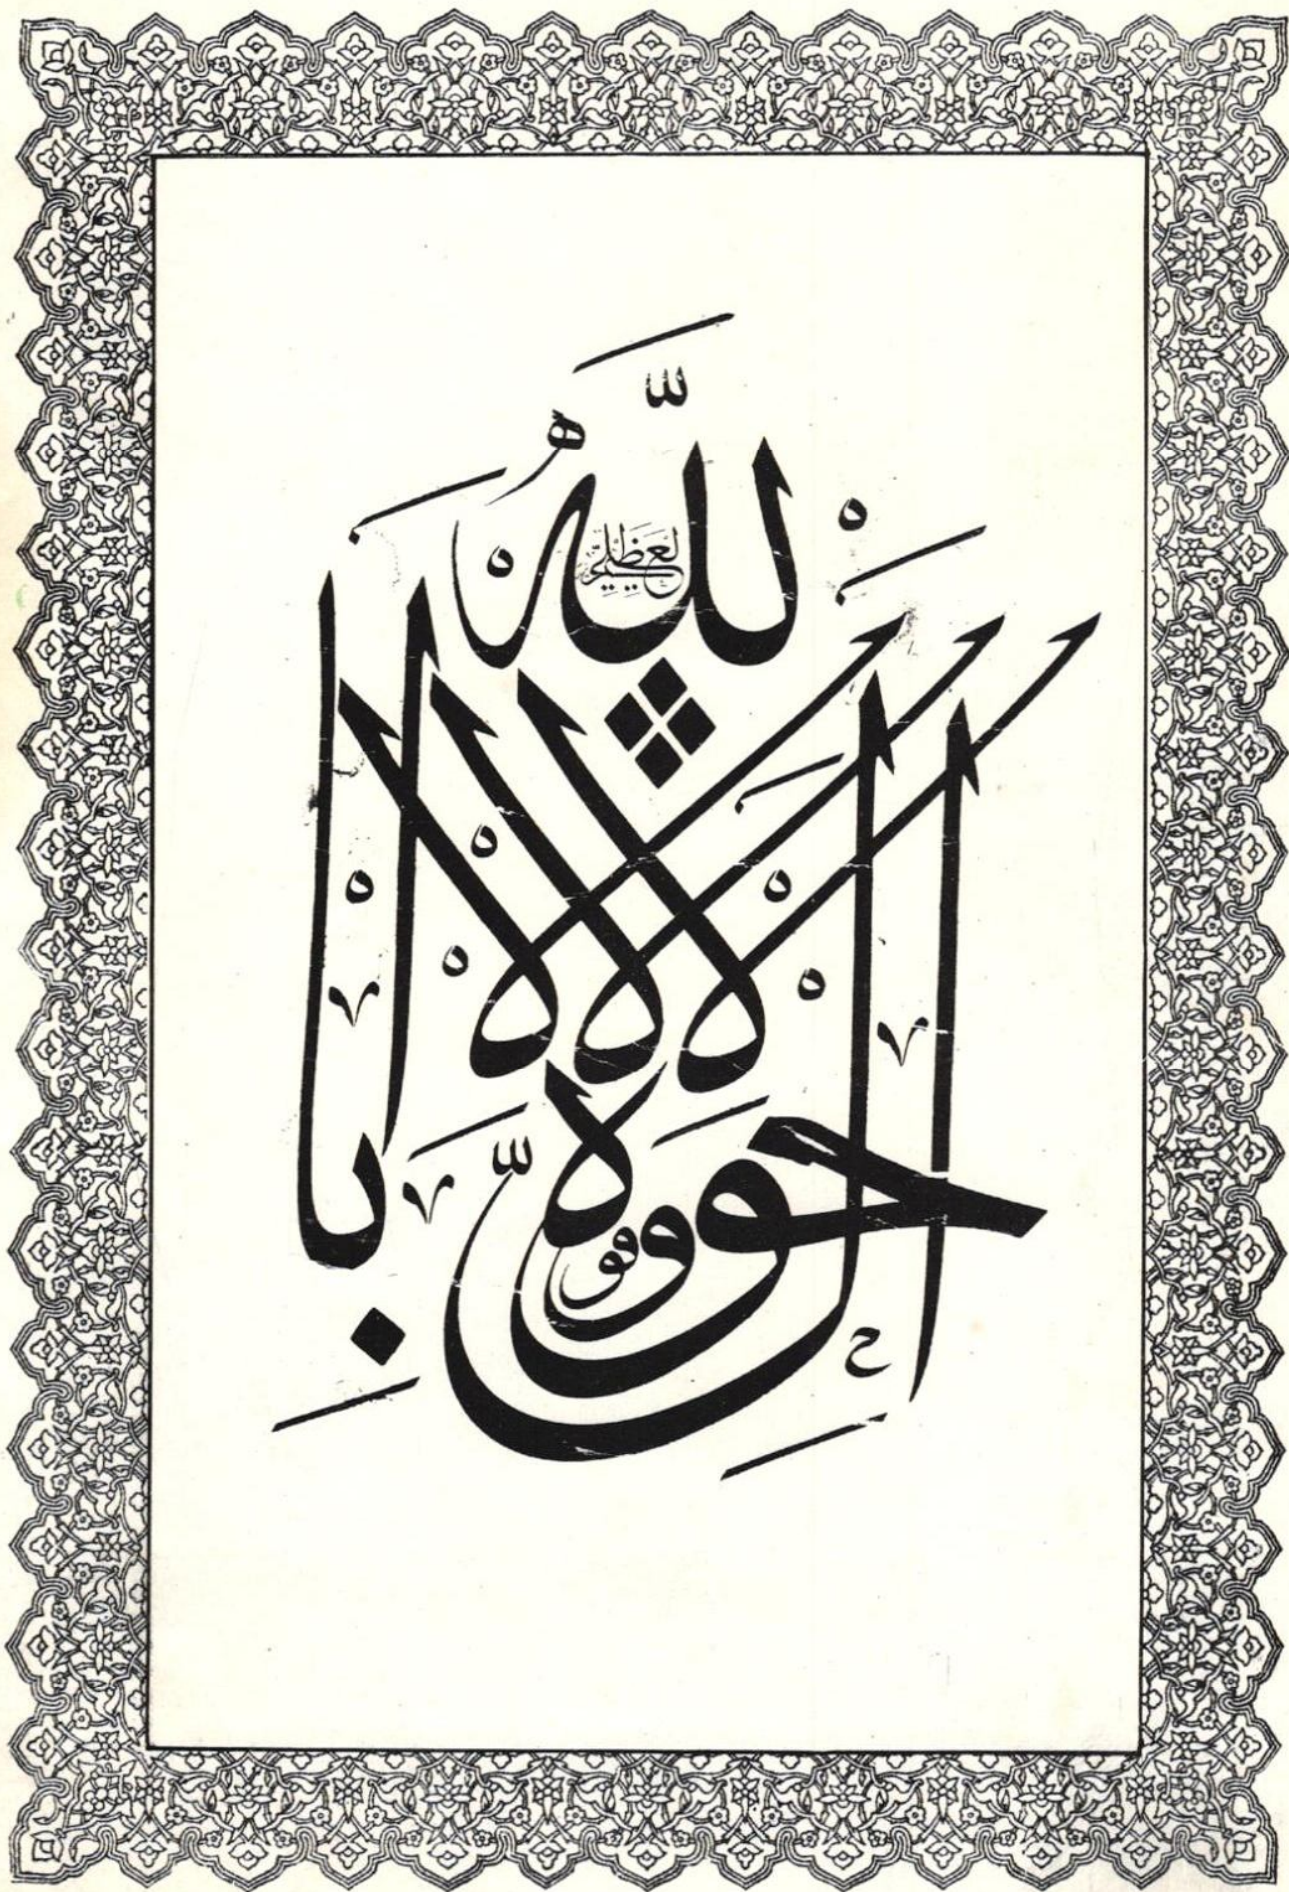 لا حول ولا قوة إلا بالله
العظيم